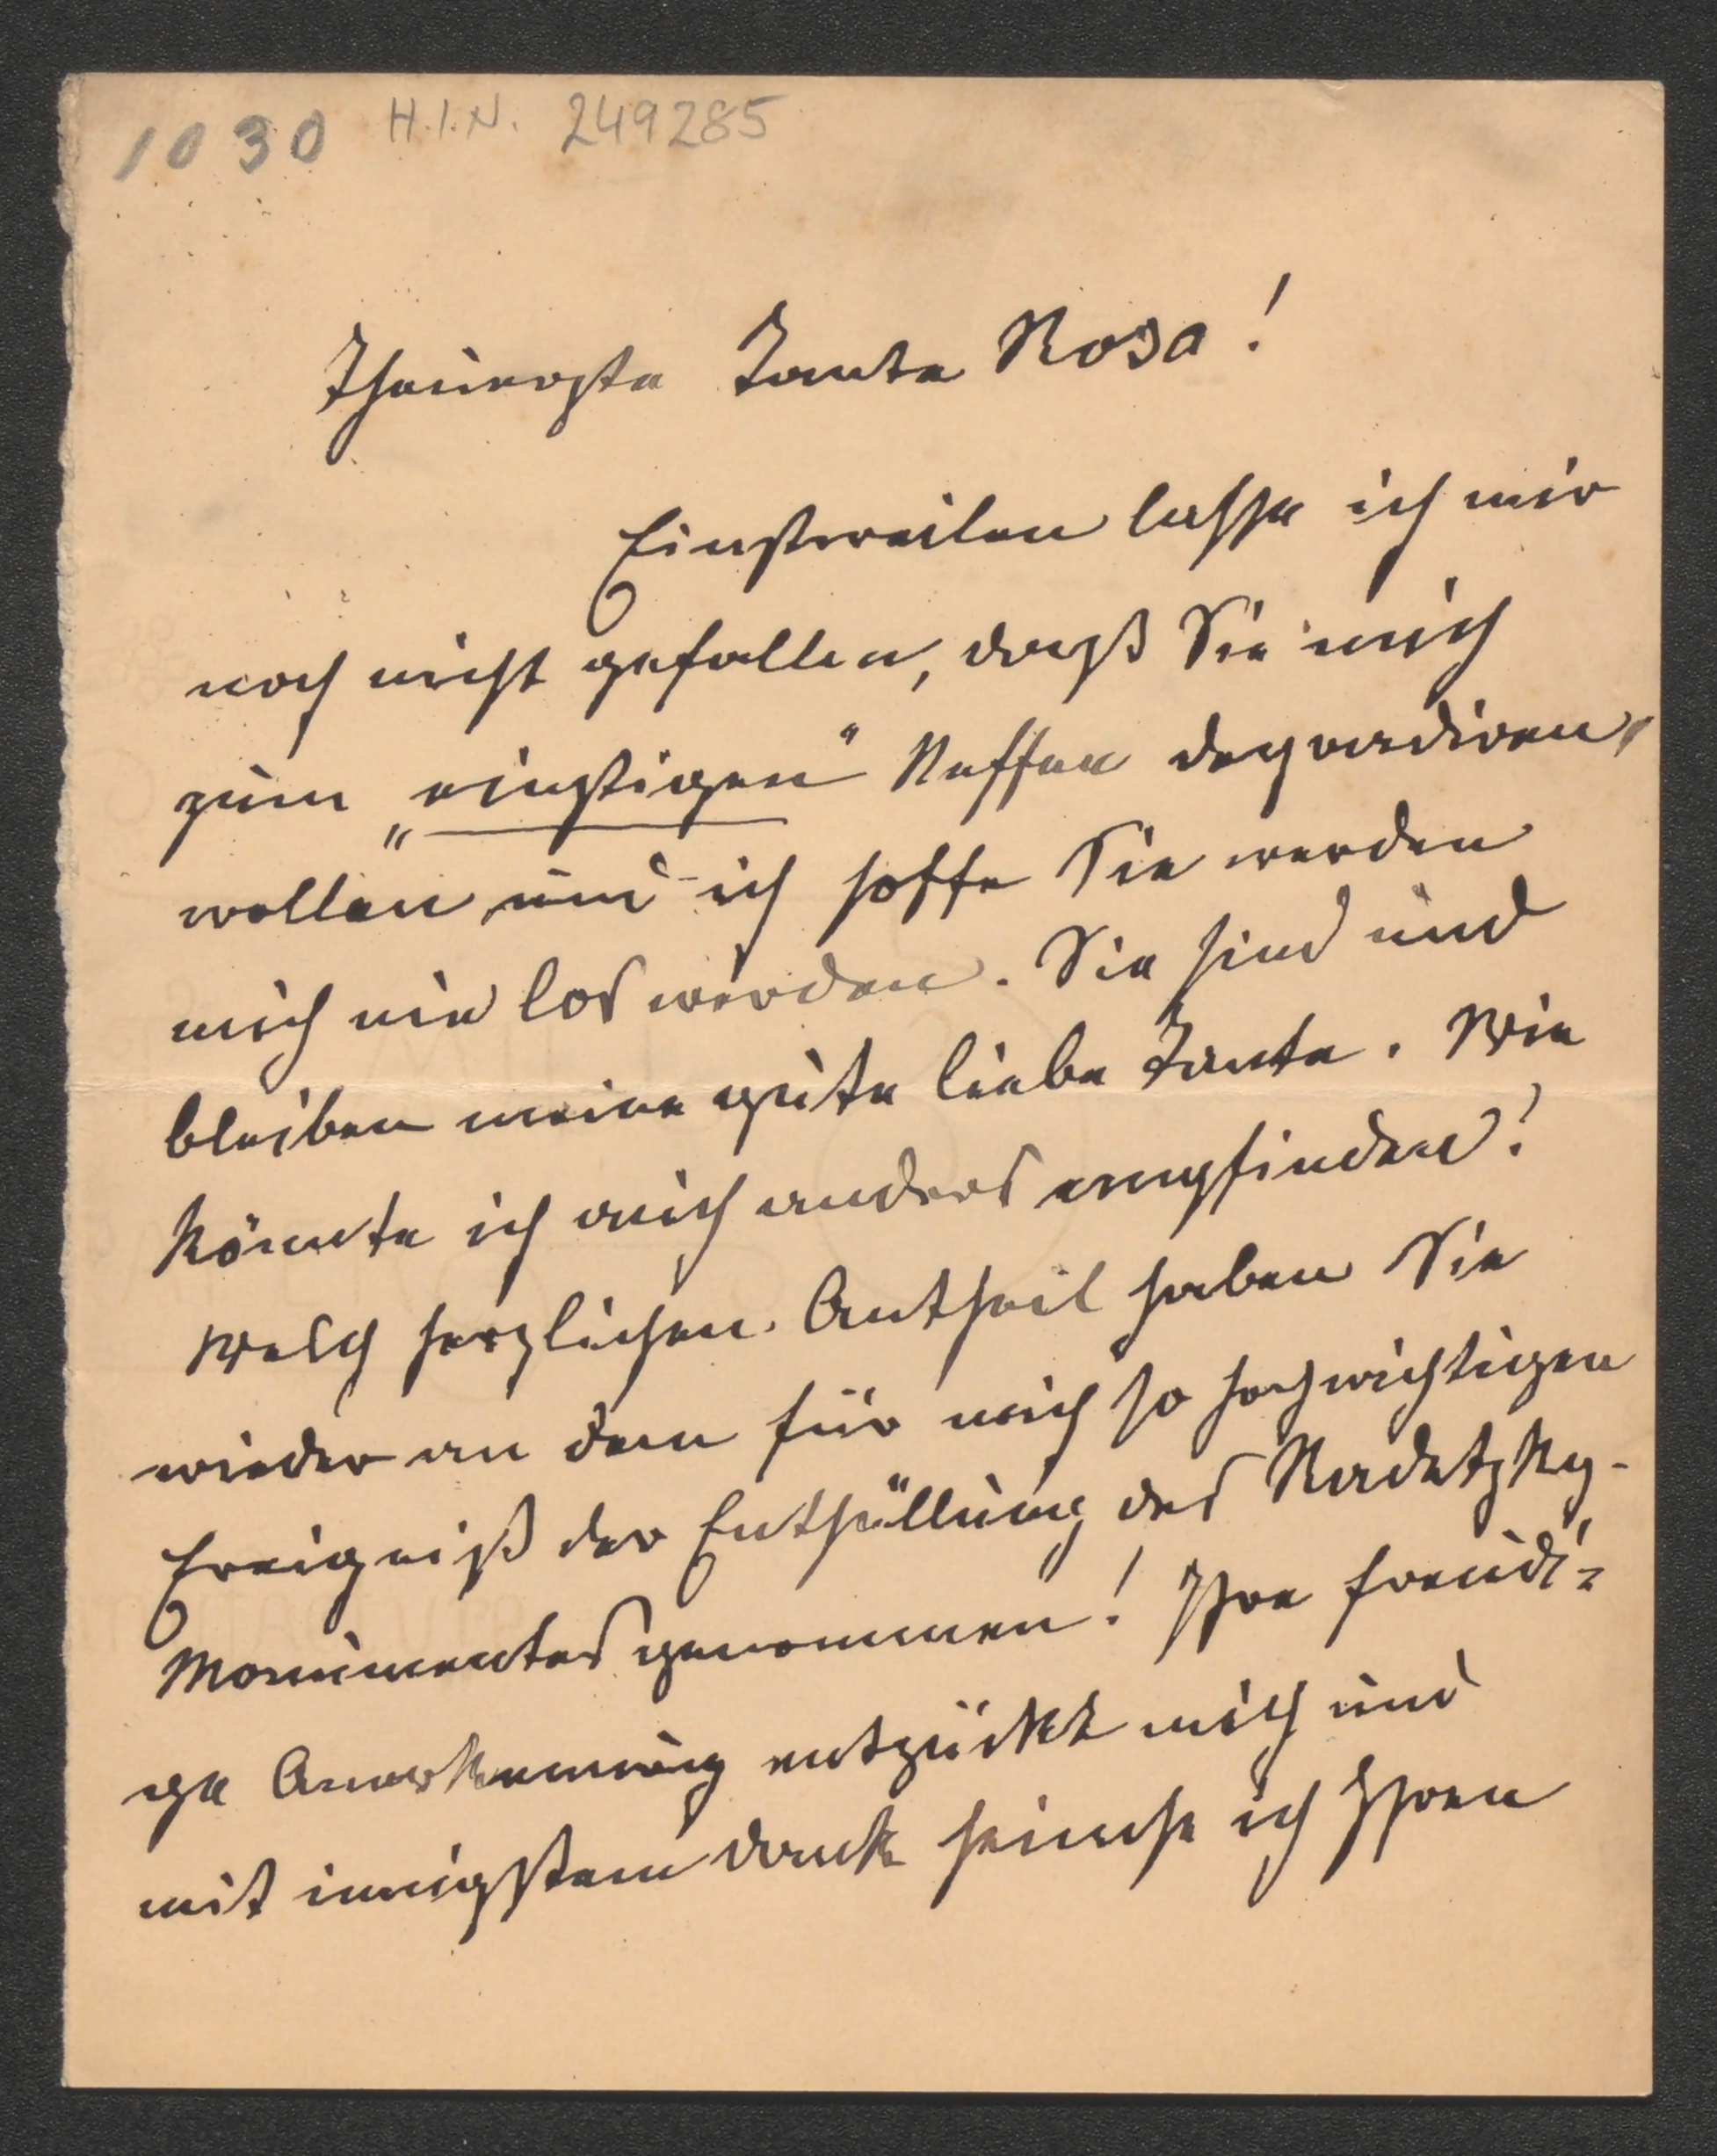 1030 H.I.N. 249285
Theuerste Tante Rosa!
Einstweilen lasse ich mir
noch nicht gefallen, daß Sie mich
zum „einstigen" Neffen degradiren,
wollen und ich hoffe Sie werden
mich nie los werden. Sie sind und
bleiben meine gute liebe Tante. Wie
könnte ich mich anders empfinden!
Welch herzlichen Antheil haben Sie
wieder an dem für mich so hochwichtigen
Ereigniß der Enthüllung des Radetzky-
Monumentes genommen! Ihre freudi=
ge Anerkennung entzückt mich und
mit innigstem Dank heimse ich Ihren